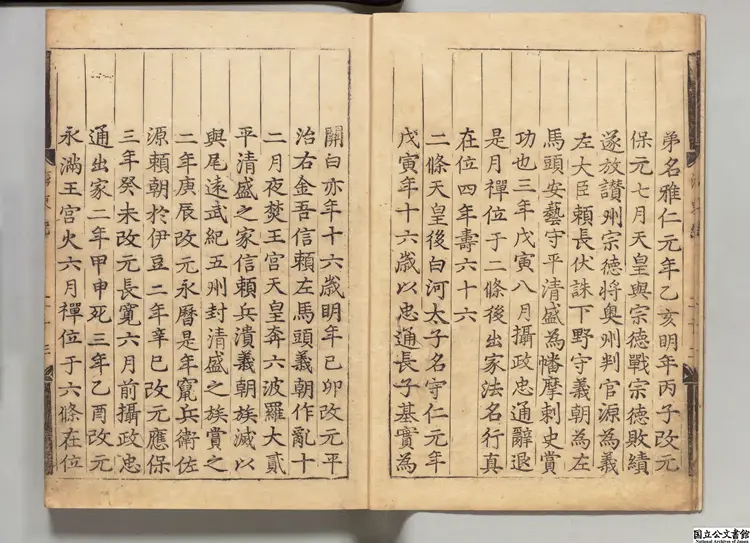 弟名雅仁元年乙亥明年丙子改元
保元七月天皇與宗德戰宗德敗績
遂放讃州宗德將奧州判官源為義
左大臣賴長伏誅下野守義朝為左
馬頭安藝守平清盛為幡摩刺史賞
功也三年戊寅八月攝政忠通辭退
是月禪位于二條後出家法名行真
在位四年壽六十六
二條天皇後白河太子名守仁元年
戊寅年十六歲以忠通長子基實為
關白亦年十六歲明年已卯改元平
治右金吾信賴左馬頭義朝作亂十
二月夜焚王宮天皇奔六波羅大貳
平清盛之家信賴兵潰義朝族滅以
與尾遠武紀五州封清盛之族賞之
二年庚辰改元永曆是年竄兵衛佐
源賴朝於伊豆二年辛巳改元應保
三年癸未改元長寬六月前攝政忠
通出家二年甲申死三年乙酉改元
永滿王宮火六月禪位于六條在位
国立公文書館
National Archives of Japan